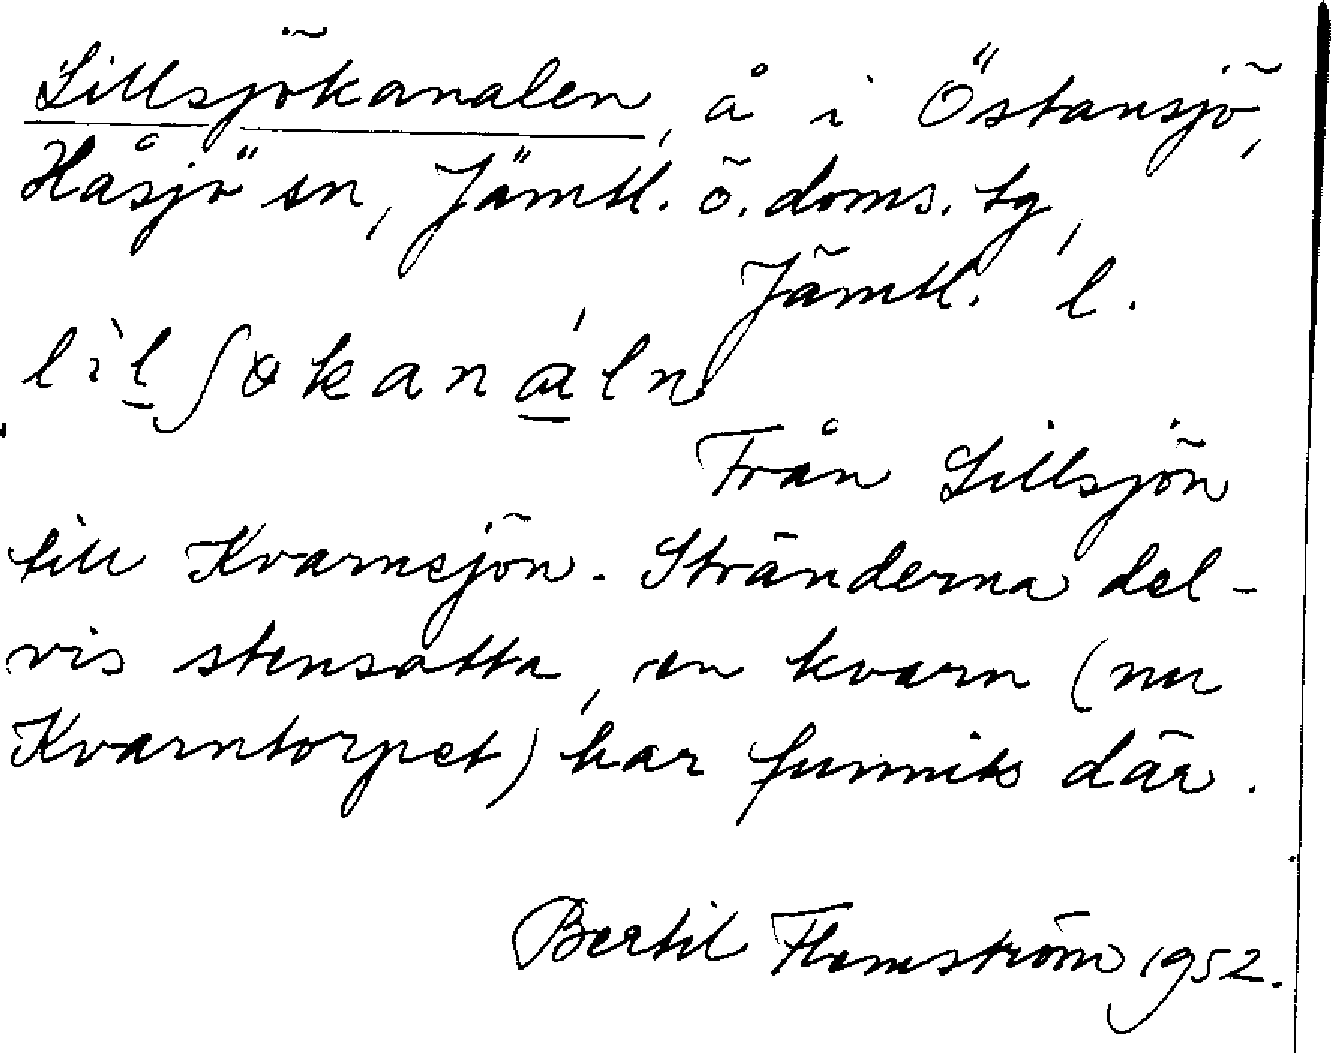 Lillsjökanalen, å i Östansjö,
Håsjö sn, Jämtl. ö. doms. tg,
Jämtl. l.
lìlʃøkanáln
Från Lillsjön
till Kvarnsjön. Stränderna del-
vis stensatta, en kvarn (nu
Kvarntorpet) har funnits där.
Bertil Flemström 1952.